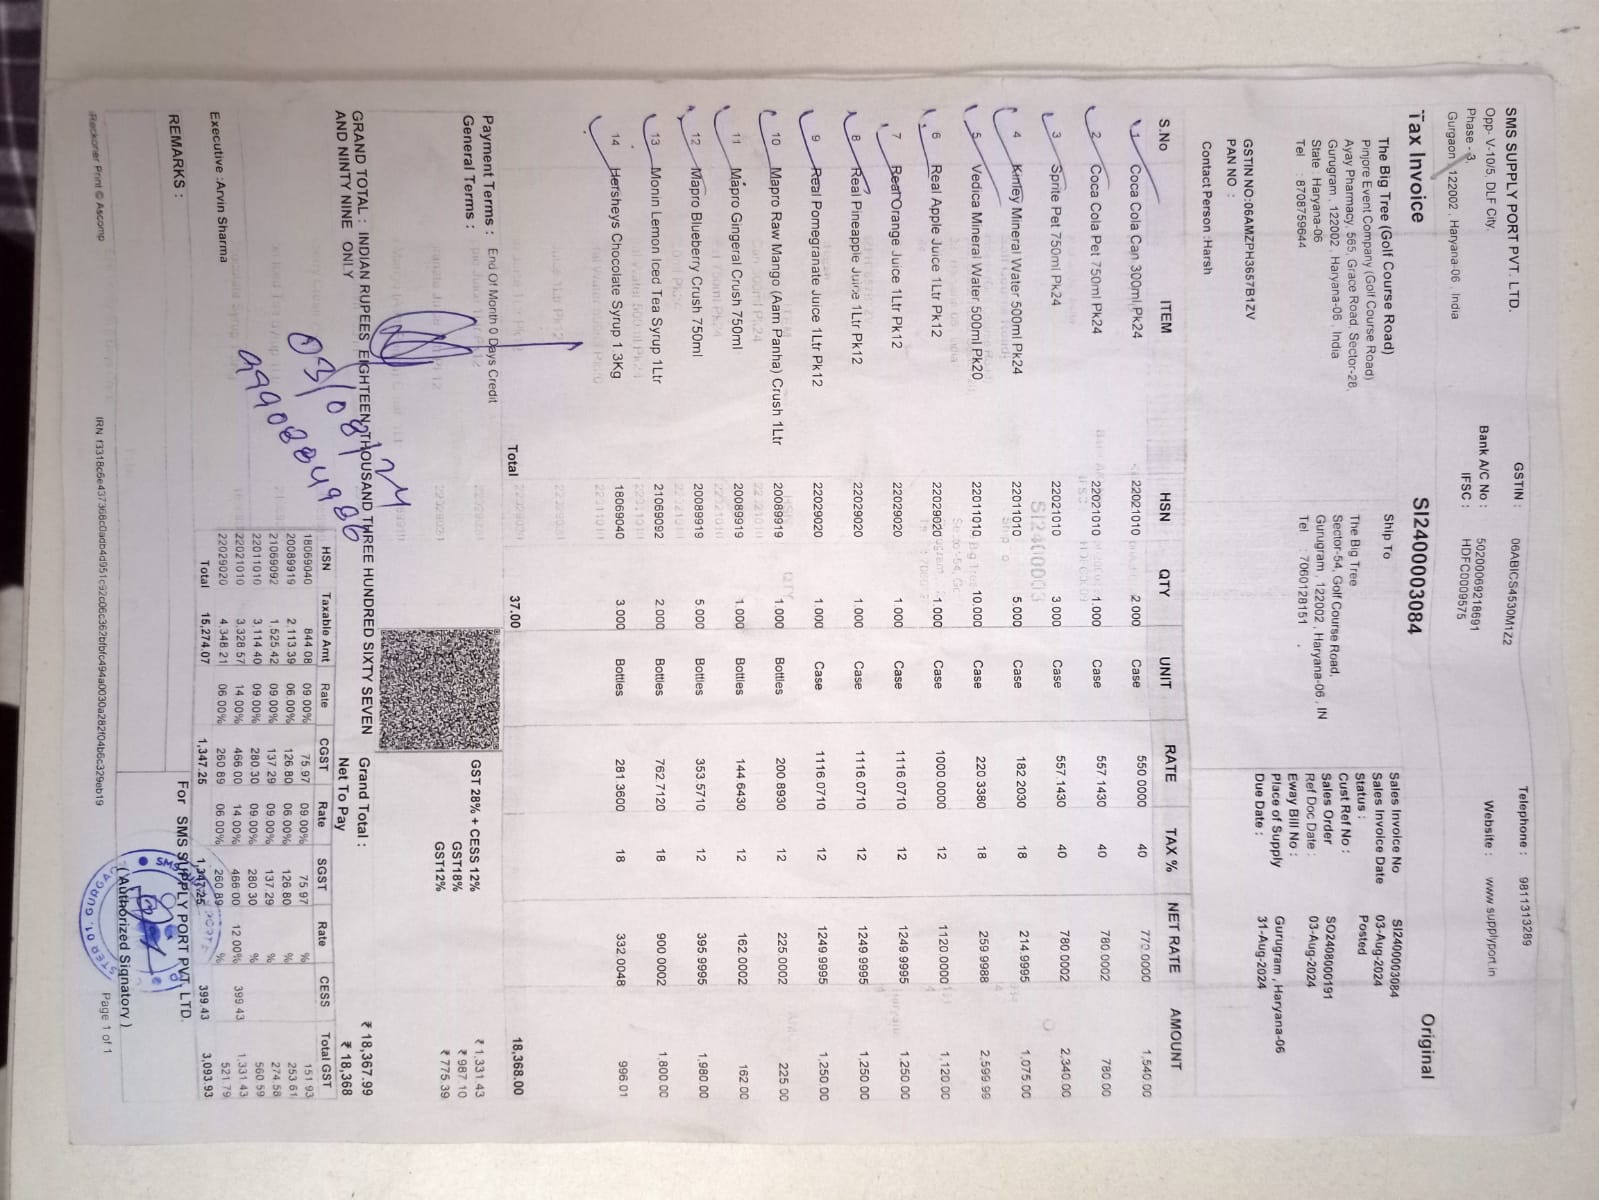 SMS SUPPLY PORT PVT. LTD.
Opp- V-10/5, DLF City,
Phase -3,
Gurgaon, 122002, Haryana-06, India
GSTIN : 06ABICS4530M1Z2
Bank A/C No : 50200069218691
IFSC : HDFC0009575
Telephone : 9811313289
Website : www.supplyport.in
Tax Invoice SI2400003084 Original
The Big Tree (Golf Course Road)
Pinjore Event Company (Golf Course Road)
Ayay Pharmacy, 565, Grace Road, Sector-28,
Gurugram, 122002, Haryana-06, India
State : Haryana-06
Tel : 8708759644
GSTIN NO:06AMZPH3657B1ZV
PAN NO :
Contact Person :Harsh
Ship To
The Big Tree
Sector-54, Golf Course Road,
Gurugram, 122002, Haryana-06, IN
Tel : 7060128151
Sales Invoice No SI2400003084
Sales Invoice Date 03-Aug-2024
Status : Posted
Cust Ref No :
Sales Order SO2408000191
Ref Doc Date : 03-Aug-2024
Eway Bill No :
Place of Supply Gurugram, Haryana-06
Due Date : 31-Aug-2024
S.No ITEM HSN QTY UNIT RATE TAX % NET RATE AMOUNT
1 Coca Cola Can 300ml Pk24 22021010 2.000 Case 550.0000 40 770.0000 1,540.00
2 Coca Cola Pet 750ml Pk24 22021010 1.000 Case 557.1430 40 780.0002 780.00
3 Sprite Pet 750ml Pk24 22021010 3.000 Case 557.1430 40 780.0002 2,340.00
4 Kinley Mineral Water 500ml Pk24 22011010 5.000 Case 182.2030 18 214.9995 1,075.00
5 Vedica Mineral Water 500ml Pk20 22011010 10.000 Case 220.3380 18 259.9988 2,599.99
6 Real Apple Juice 1Ltr Pk12 22029020 1.000 Case 1000.0000 12 1120.0000 1,120.00
7 Real Orange Juice 1Ltr Pk12 22029020 1.000 Case 1116.0710 12 1249.9995 1,250.00
8 Real Pineapple Juice 1Ltr Pk12 22029020 1.000 Case 1116.0710 12 1249.9995 1,250.00
9 Real Pomegranate Juice 1Ltr Pk12 22029020 1.000 Case 1116.0710 12 1249.9995 1,250.00
10 Mapro Raw Mango (Aam Panha) Crush 1Ltr 20089919 1.000 Bottles 200.8930 12 225.0002 225.00
11 Mapro Gingeral Crush 750ml 20089919 1.000 Bottles 144.6430 12 162.0002 162.00
12 Mapro Blueberry Crush 750ml 20089919 5.000 Bottles 353.5710 12 395.9995 1,980.00
13 Monin Lemon Iced Tea Syrup 1Ltr 21069092 2.000 Bottles 762.7120 18 900.0002 1,800.00
14 Hersheys Chocolate Syrup 1.3Kg 18069040 3.000 Bottles 281.3600 18 332.0048 996.01
Total 37.00 18,368.00
Payment Terms : End Of Month 0 Days Credit
General Terms :
GST 28% + CESS 12% ₹ 1,331.43
GST18% ₹ 987.10
GST12% ₹ 775.39
GRAND TOTAL : INDIAN RUPEES EIGHTEEN THOUSAND THREE HUNDRED SIXTY SEVEN
AND NINTY NINE ONLY
Grand Total : ₹ 18,367.99
Net To Pay ₹ 18,368
03/08/24
9990884986
HSN Taxable Amt Rate CGST Rate SGST Rate CESS Total GST
18069040 844.08 09.00% 75.97 09.00% 75.97 % 151.93
20089919 2,113.39 06.00% 126.80 06.00% 126.80 % 253.61
21069092 1,525.42 09.00% 137.29 09.00% 137.29 % 274.58
22011010 3,114.40 09.00% 280.30 09.00% 280.30 % 560.59
22021010 3,328.57 14.00% 466.00 14.00% 466.00 12.00% 399.43 1,331.43
22029020 4,348.21 06.00% 260.89 06.00% 260.89 % 521.79
Total 15,274.07 1,347.25 1,347.25 399.43 3,093.93
Executive :Arvin Sharma
REMARKS :
For SMS SUPPLY PORT PVT. LTD.
( Authorized Signatory )
Reckoner Print © Ascomp
Page 1 of 1